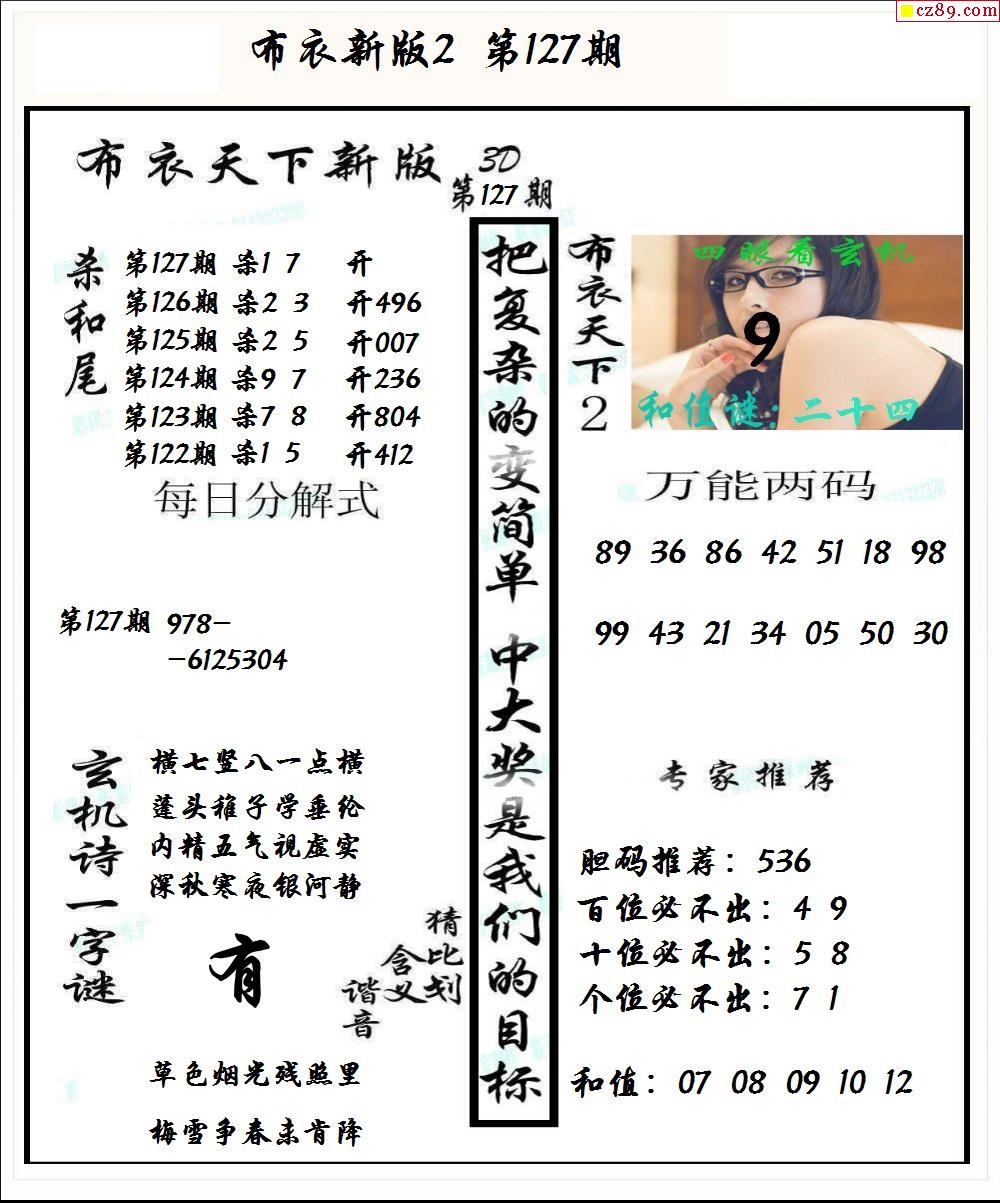 cz89.com
布衣新版2 第127期
布衣天下新版 3D
第127期
杀和尾
第127期 杀1 7 开
第126期 杀2 3 开496
第125期 杀2 5 开007
第124期 杀9 7 开236
第123期 杀7 8 开804
第122期 杀1 5 开412
每日分解式
第127期 978-
-6125304
玄机诗一字谜
横七竖八一点横
蓬头稚子学垂纶
内精五气视虚实
深秋寒夜银河静
有
猜比划
含义
谐音
草色烟光残照里
梅雪争春未肯降
把复杂的变简单 中大奖是我们的目标
布衣天下2
四眼看玄机
9
和值谜:二十四
万能两码
89 36 86 42 51 18 98
99 43 21 34 05 50 30
专家推荐
胆码推荐：536
百位必不出：4 9
十位必不出：5 8
个位必不出：7 1
和值：07 08 09 10 12